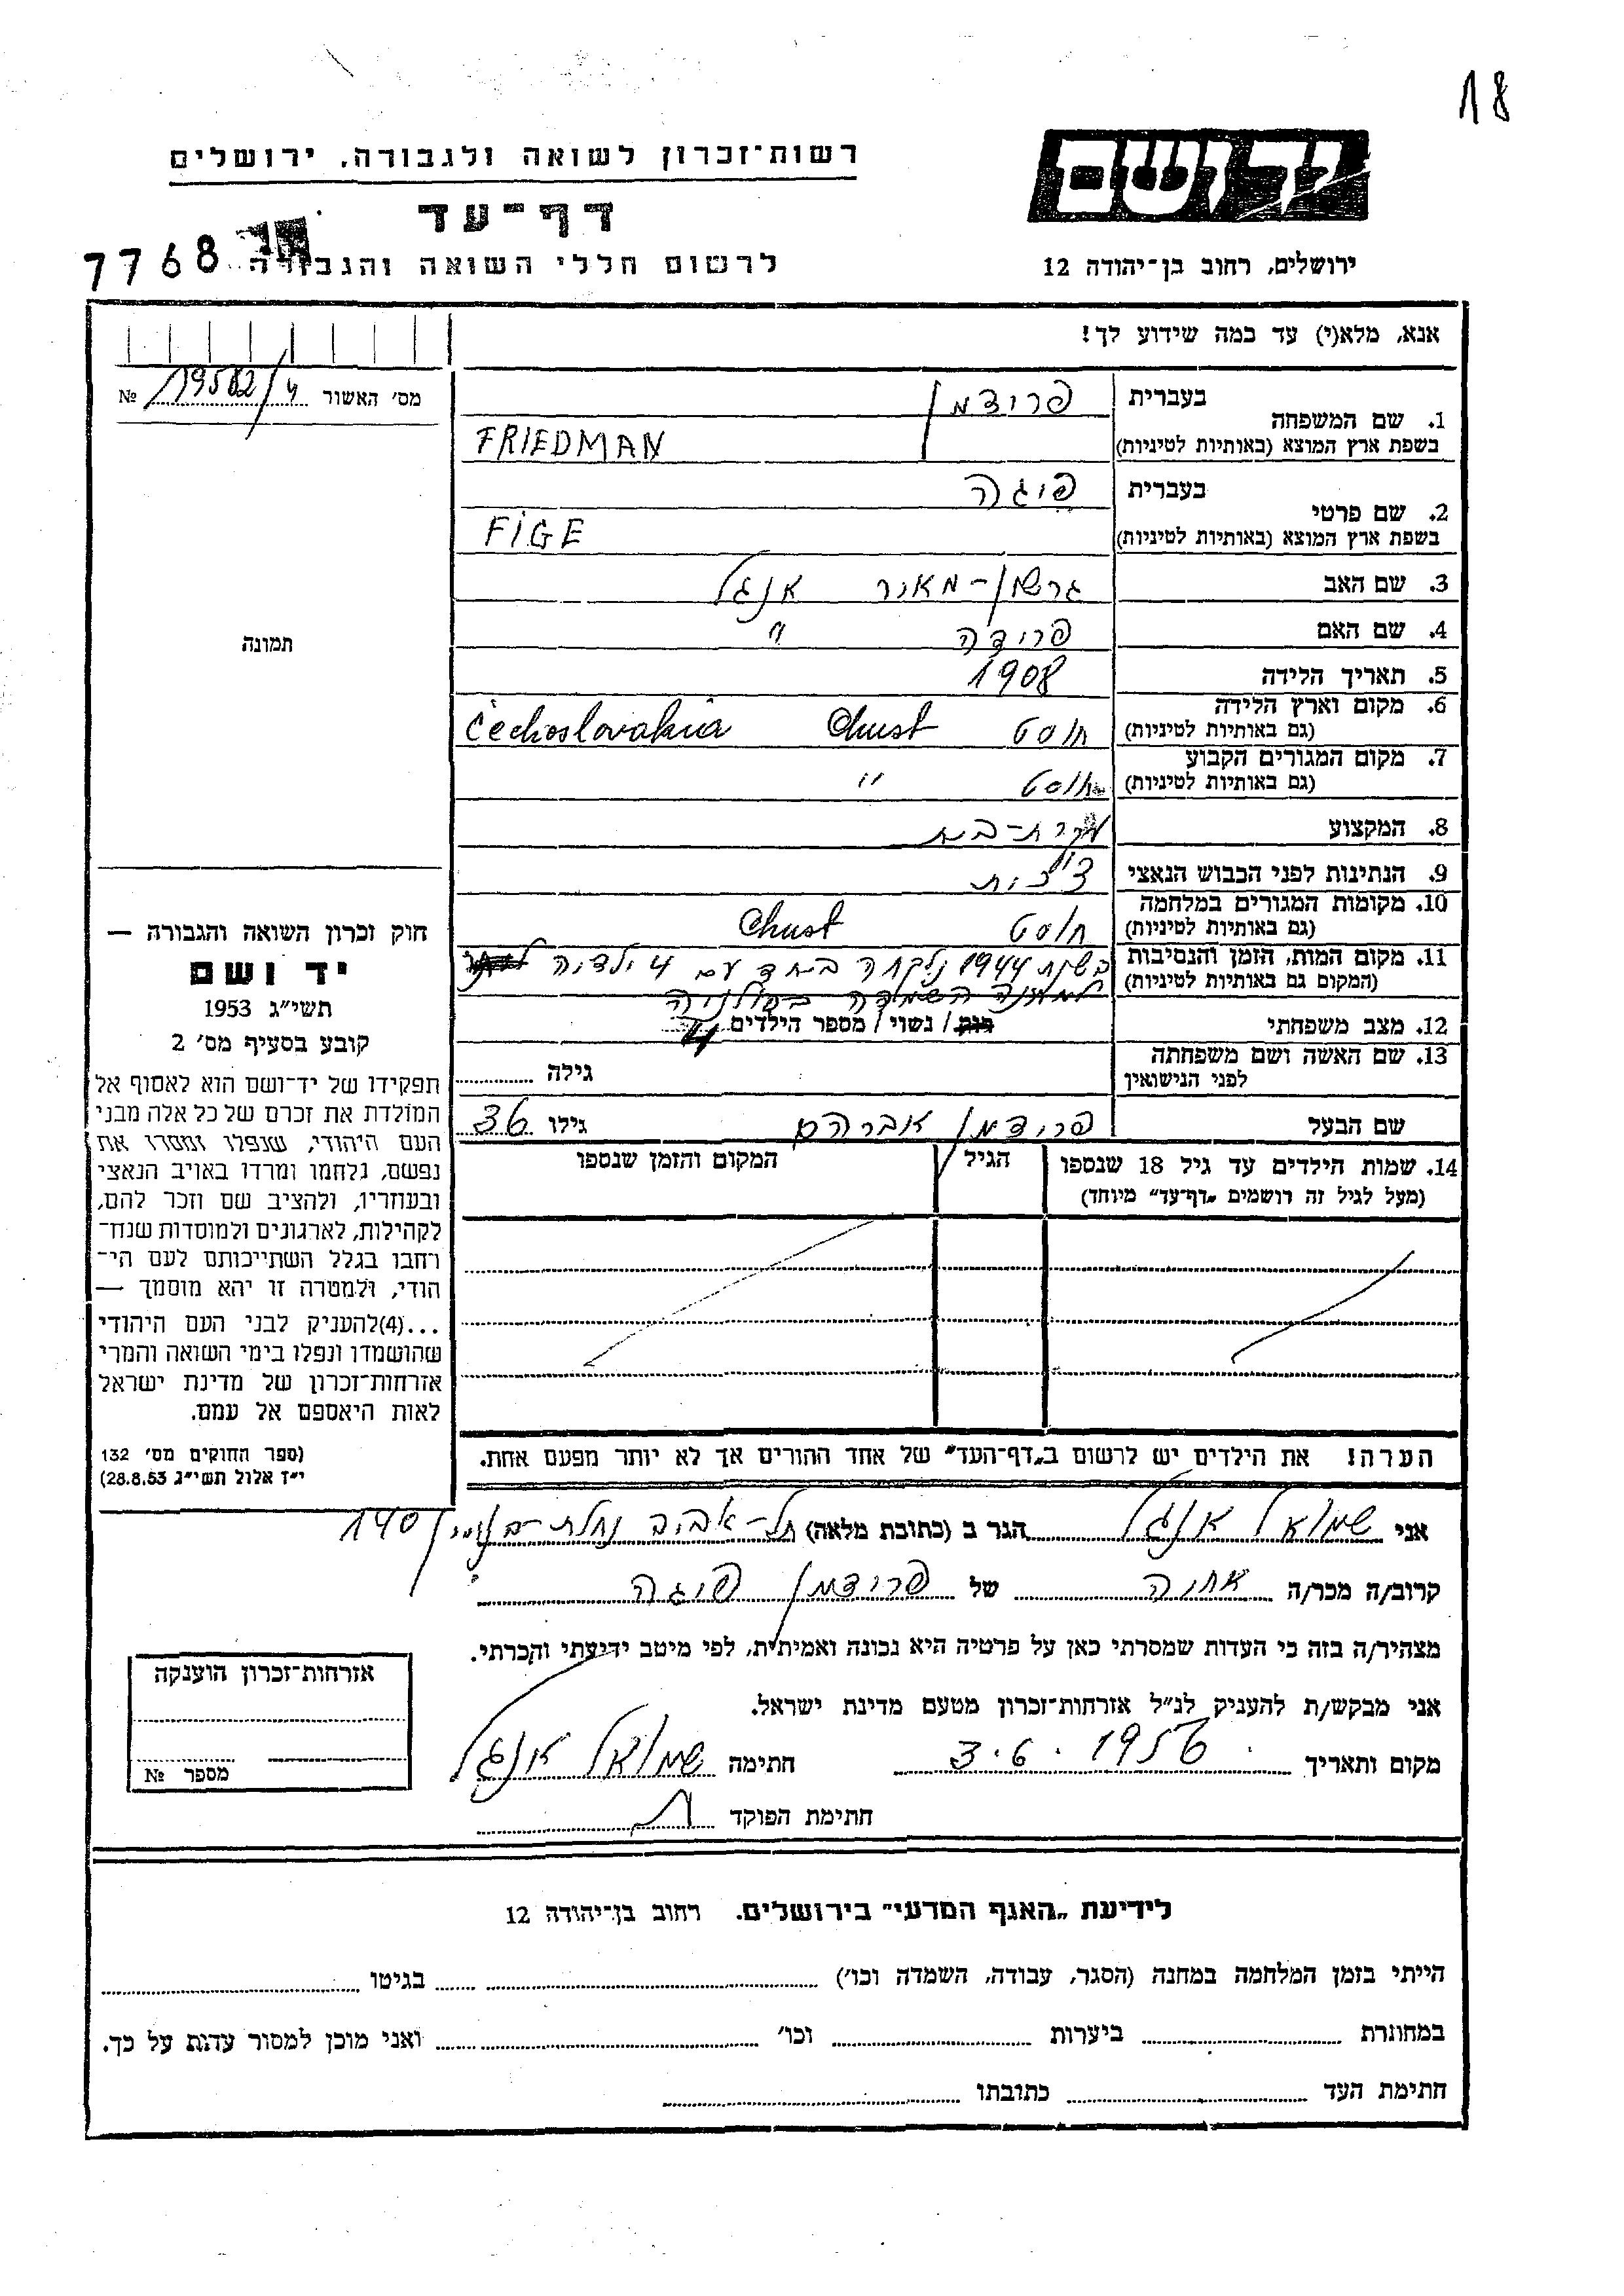 18
רשות־זכרון לשואה ולגבורה, ירושלים
יד ושם
דף־עד
7768
לרשום חללי השואה והגבורה
ירושלים, רחוב בן־יהודה 12
אנא, מלא(י) עד כמה שידוע לך!
מס' האשור 19502/4 №
1. שם המשפחה בעברית פרידמן
בשפת ארץ המוצא (באותיות לטיניות) FRIEDMAN
2. שם פרטי בעברית פיגה
בשפת ארץ המוצא (באותיות לטיניות) FIGE
3. שם האב גרשון-מאיר אנגל
4. שם האם פרידה "
תמונה
5. תאריך הלידה 1908
6. מקום וארץ הלידה (גם באותיות לטיניות) חוסט Chust Čechoslovakia
7. מקום המגורים הקבוע (גם באותיות לטיניות) חוסט "
8. המקצוע עקרת-בית
9. הנתינות לפני הכבוש הנאצי צ'כית
10. מקומות המגורים במלחמה (גם באותיות לטיניות) חוסט Chust
11. מקום המות, הזמן והנסיבות (המקום גם באותיות לטיניות) בשנת 1944 נלקחה ביחד עם 4 ילדיה
למחנה השמדה בפולניה
12. מצב משפחתי רווק / נשוי / מספר הילדים 4
13. שם האשה ושם משפחתה לפני הנישואין גילה
שם הבעל פרידמן אברהם גילו 36
14. שמות הילדים עד גיל 18 שנספו הגיל המקום והזמן שנספו
(מעל לגיל זה רושמים „דף־עד” מיוחד)
חוק זכרון השואה והגבורה —
יד ושם
תשי"ג 1953
קובע בסעיף מס' 2
תפקידו של יד־ושם הוא לאסוף אל
המולדת את זכרם של כל אלה מבני
העם היהודי, שנפלו ומסרו את
נפשם, נלחמו ומרדו באויב הנאצי
ובעוזריו, ולהציב שם וזכר להם,
לקהילות, לארגונים ולמוסדות שנח־
רחבו בגלל השתייכותם לעם הי־
הודי, ולמטרה זו יהא מוסמך —
...(4)להעניק לבני העם היהודי
שהושמדו ונפלו בימי השואה והמרי
אזרחות־זכרון של מדינת ישראל
לאות היאספם אל עמם.
(ספר החוקים מס' 132
י"ז אלול תשי"ג 28.8.53)
הערה! את הילדים יש לרשום ב„דף־העד” של אחד ההורים אך לא יותר מפעם אחת.
אני שמואל אנגל הגר ב (כתובת מלאה) תל-אביב נחלת-בנימין 140
קרוב/ה מכר/ה אחיה של פרידמן פיגה
מצהיר/ה בזה כי העדות שמסרתי כאן על פרטיה היא נכונה ואמיתית, לפי מיטב ידיעתי והכרתי.
אני מבקש/ת להעניק לנ"ל אזרחות־זכרון מטעם מדינת ישראל.
מקום ותאריך 3.6.1956 חתימה שמואל אנגל
חתימת הפוקד
אזרחות־זכרון הוענקה
מספר №
לידיעת „האגף המדעי” בירושלים. רחוב בן־יהודה 12
הייתי בזמן המלחמה במחנה (הסגר, עבודה, השמדה וכו') בגיטו
במחתרת ביערות וכו' ואני מוכן למסור עדות על כך.
חתימת העד כתובתו